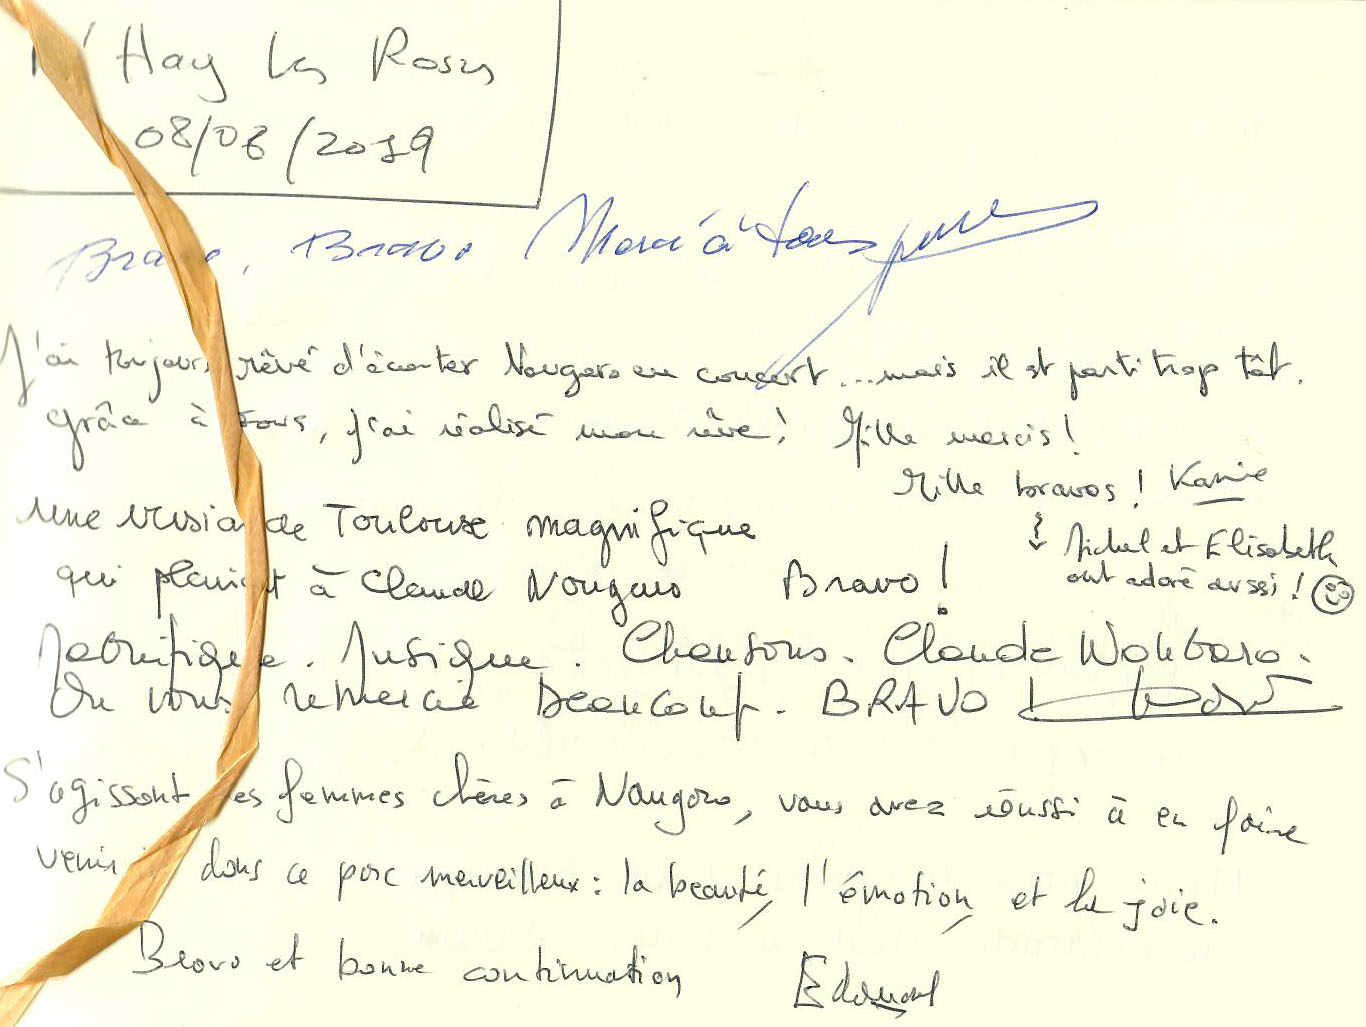 L'Hay Les Roses
08/06/2019
Bravo, Bravo Merci à tous
J'ai toujours rêvé d'écouter Nougaro en concert... mais il est parti trop tôt.
Grâce à vous, j'ai réalisé mon rêve! Mille mercis!
Mille bravos! Karine
Une version de Toulouse magnifique
Michel et Elisabeth
ont adoré aussi!
qui plairait à Claude Nougaro Bravo!
Magnifique. Musique. Chansons. Claude Nougaro.
On vous remercie Beaucoup. BRAVO
S'agissant des femmes chères à Nougaro, vous avez réussi à en faire
venir dans ce parc merveilleux: la beauté, l'émotion, et la joie.
Bravo et bonne continuation Edouard